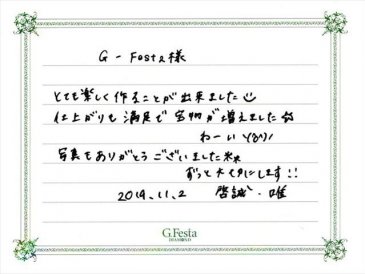 G-Festa様
とても楽しく作ることが出来ました
仕上がりも満足で宝物が増えました☆
わーい \(^o^)/
写真もありがとうございました
ずっと大切にします!!
2019.11.2 啓誠・唯
G.Festa
DIAMOND